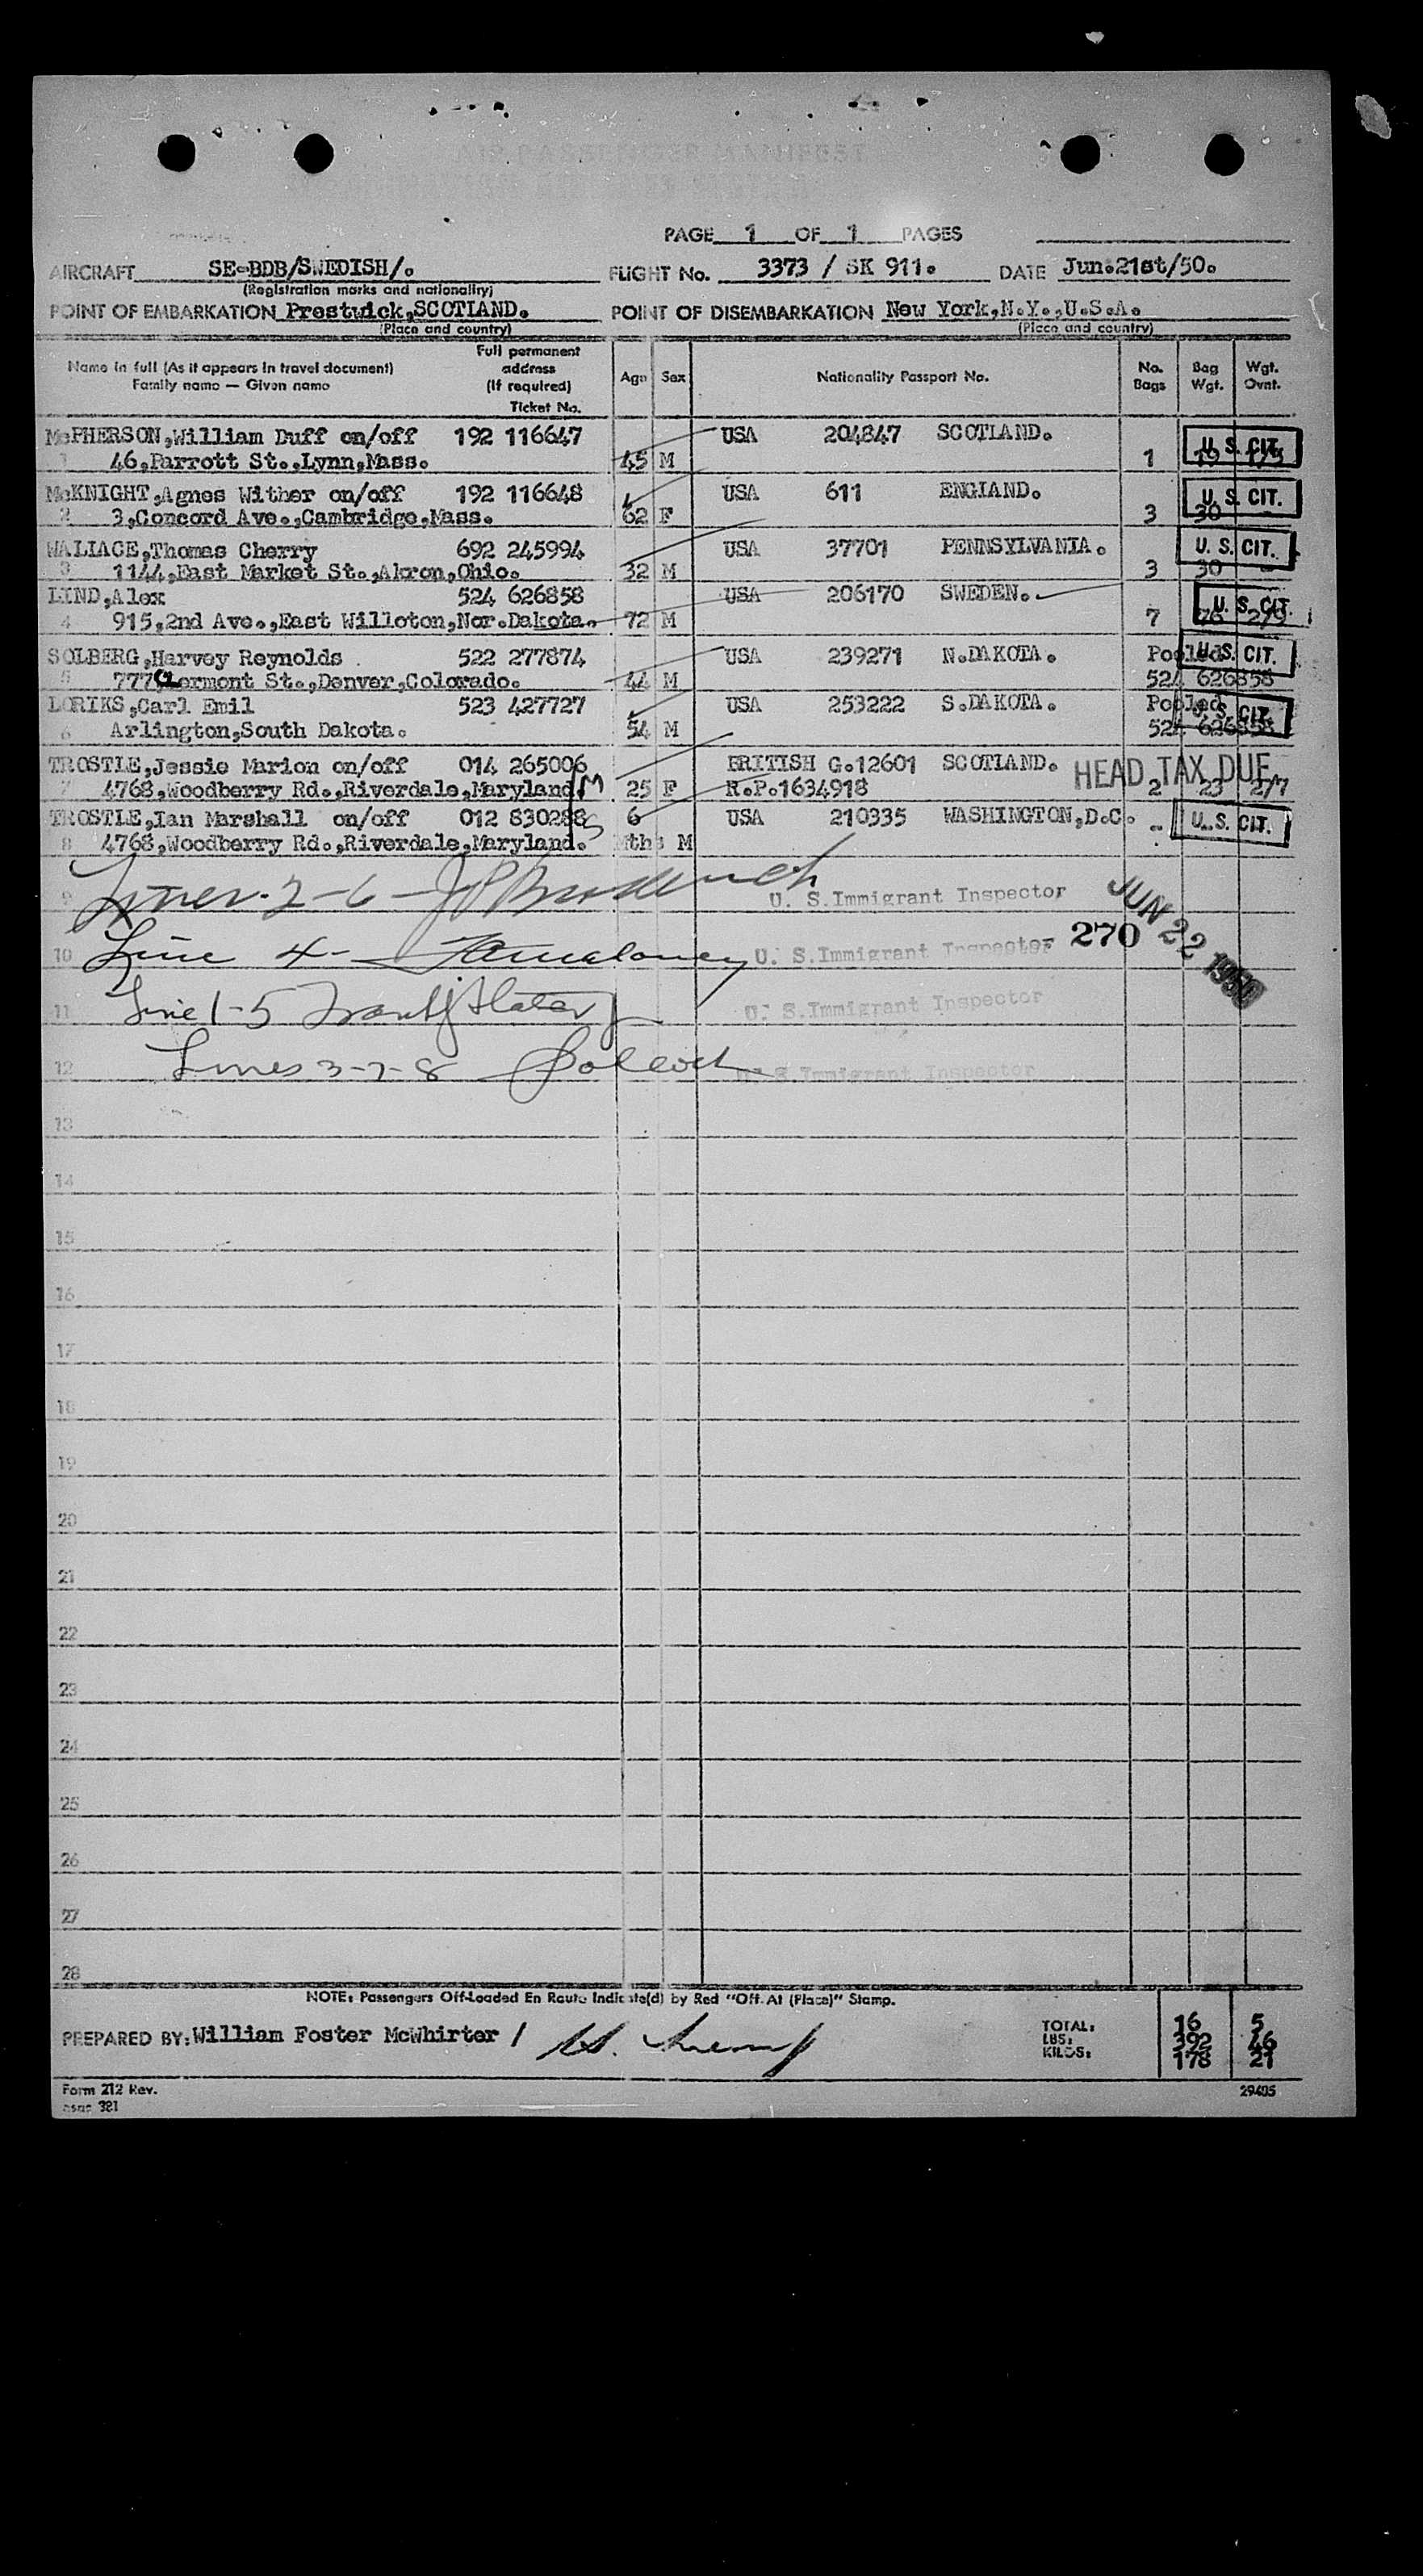 AIR PASSENGER MANIFEST
PAGE 1 OF 1 PAGES
AIRCRAFT SE-BDB/SWEDISH/. FLIGHT No. 3373 / SK 911. DATE Jun.21st/50.
(Registration marks and nationality)
POINT OF EMBARKATION Prestwick,SCOTLAND. POINT OF DISEMBARKATION New York,N.Y.,U.S.A.
(Place and country) (Place and country)
Name in full (As it appears in travel document) Family name — Given name Full permanent address (If required) Ticket No. Age Sex Nationality Passport No. No. Bags Bag Wgt. Wgt. Ovnt.
McPHERSON,William Duff on/off 192 116647 USA 204847 SCOTLAND. U. S. CIT.
1 46,Parrott St.,Lynn,Mass. 45 M 1 19
McKNIGHT,Agnes Wither on/off 192 116648 USA 611 ENGLAND. U. S. CIT.
2 3,Concord Ave.,Cambridge,Mass. 62 F 3 30
WALLACE,Thomas Cherry 692 245994 USA 37701 PENNSYLVANIA. U. S. CIT.
3 1144,East Market St.,Akron,Ohio. 32 M 3 30
LIND,Alex 524 626858 USA 206170 SWEDEN. U. S. CIT.
4 915,2nd Ave.,East Williton,Nor.Dakota. 72 M 7 76 2/9
SOLBERG,Harvey Reynolds 522 277874 USA 239271 N.DAKOTA. Pooled U. S. CIT.
5 777 Clermont St.,Denver,Colorado. 44 M 524 626858
LORIKS,Carl Emil 523 427727 USA 253222 S.DAKOTA. Pooled U. S. CIT.
6 Arlington,South Dakota. 54 M 524 626858
TROSTLE,Jessie Marion on/off 014 265006 BRITISH G.12601 SCOTLAND. HEAD TAX DUE
7 4768,Woodberry Rd.,Riverdale,Maryland. M 25 F R.P.1634918 2 23 2/7
TROSTLE,Ian Marshall on/off 012 830288 S 6 USA 210335 WASHINGTON,D.C. - U. S. CIT.
8 4768,Woodberry Rd.,Riverdale,Maryland. Mths M
9 Lines 2-6 - U. S.Immigrant Inspector JUN 22 1950
10 Line 4- U. S.Immigrant Inspector 270
11 Line 1-5 U. S.Immigrant Inspector
12 Lines 3-7-8 U. S.Immigrant Inspector
13
14
15
16
17
18
19
20
21
22
23
24
25
26
27
28
NOTE: Passengers Off-Loaded En Route Indicate(d) by Red "Off. At (Place)" Stamp.
PREPARED BY: William Foster McWhirter /
TOTAL: 16 5
LBS: 392 46
KILOS: 178 21
Form 212 Rev. 29405
381